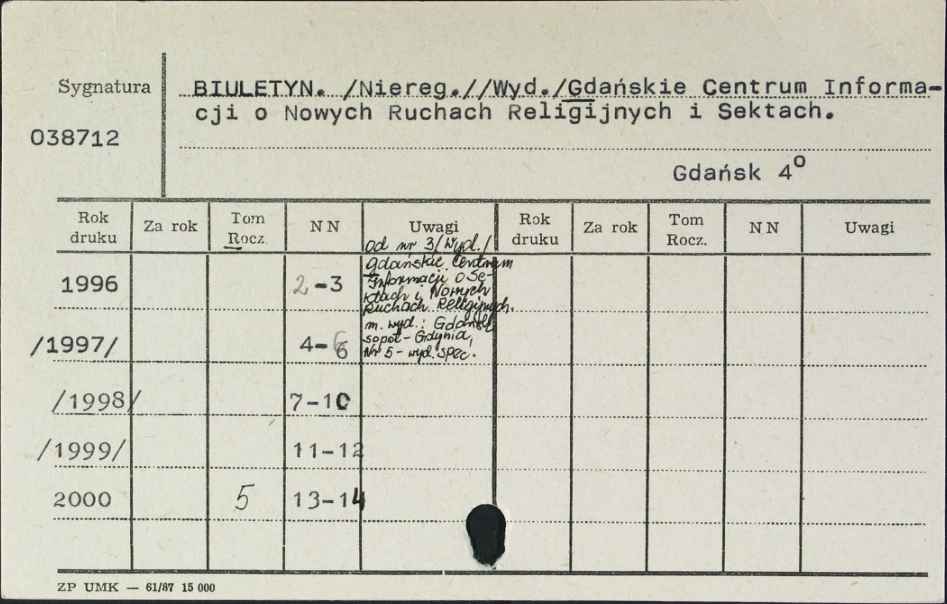 Sygnatura BIULETYN. /Niereg.//Wyd./Gdańskie Centrum Informa-
cji o Nowych Ruchach Religijnych i Sektach.
038712
Gdańsk 4°
Rok druku Za rok Tom Rocz. NN Uwagi Rok druku Za rok Tom Rocz. NN Uwagi
od nr 3/Wyd./
Gdańskie Centrum
Informacji o Se-
ktach i Nowych
Ruchach Religijnych.
m. wyd.: Gdańsk
Sopot - Gdynia,
Nr 5 - wyd. spec.
1996 2-3
/1997/ 4-6
/1998/ 7-10
/1999/ 11-12
2000 5 13-14
ZP UMK — 61/87 15 000